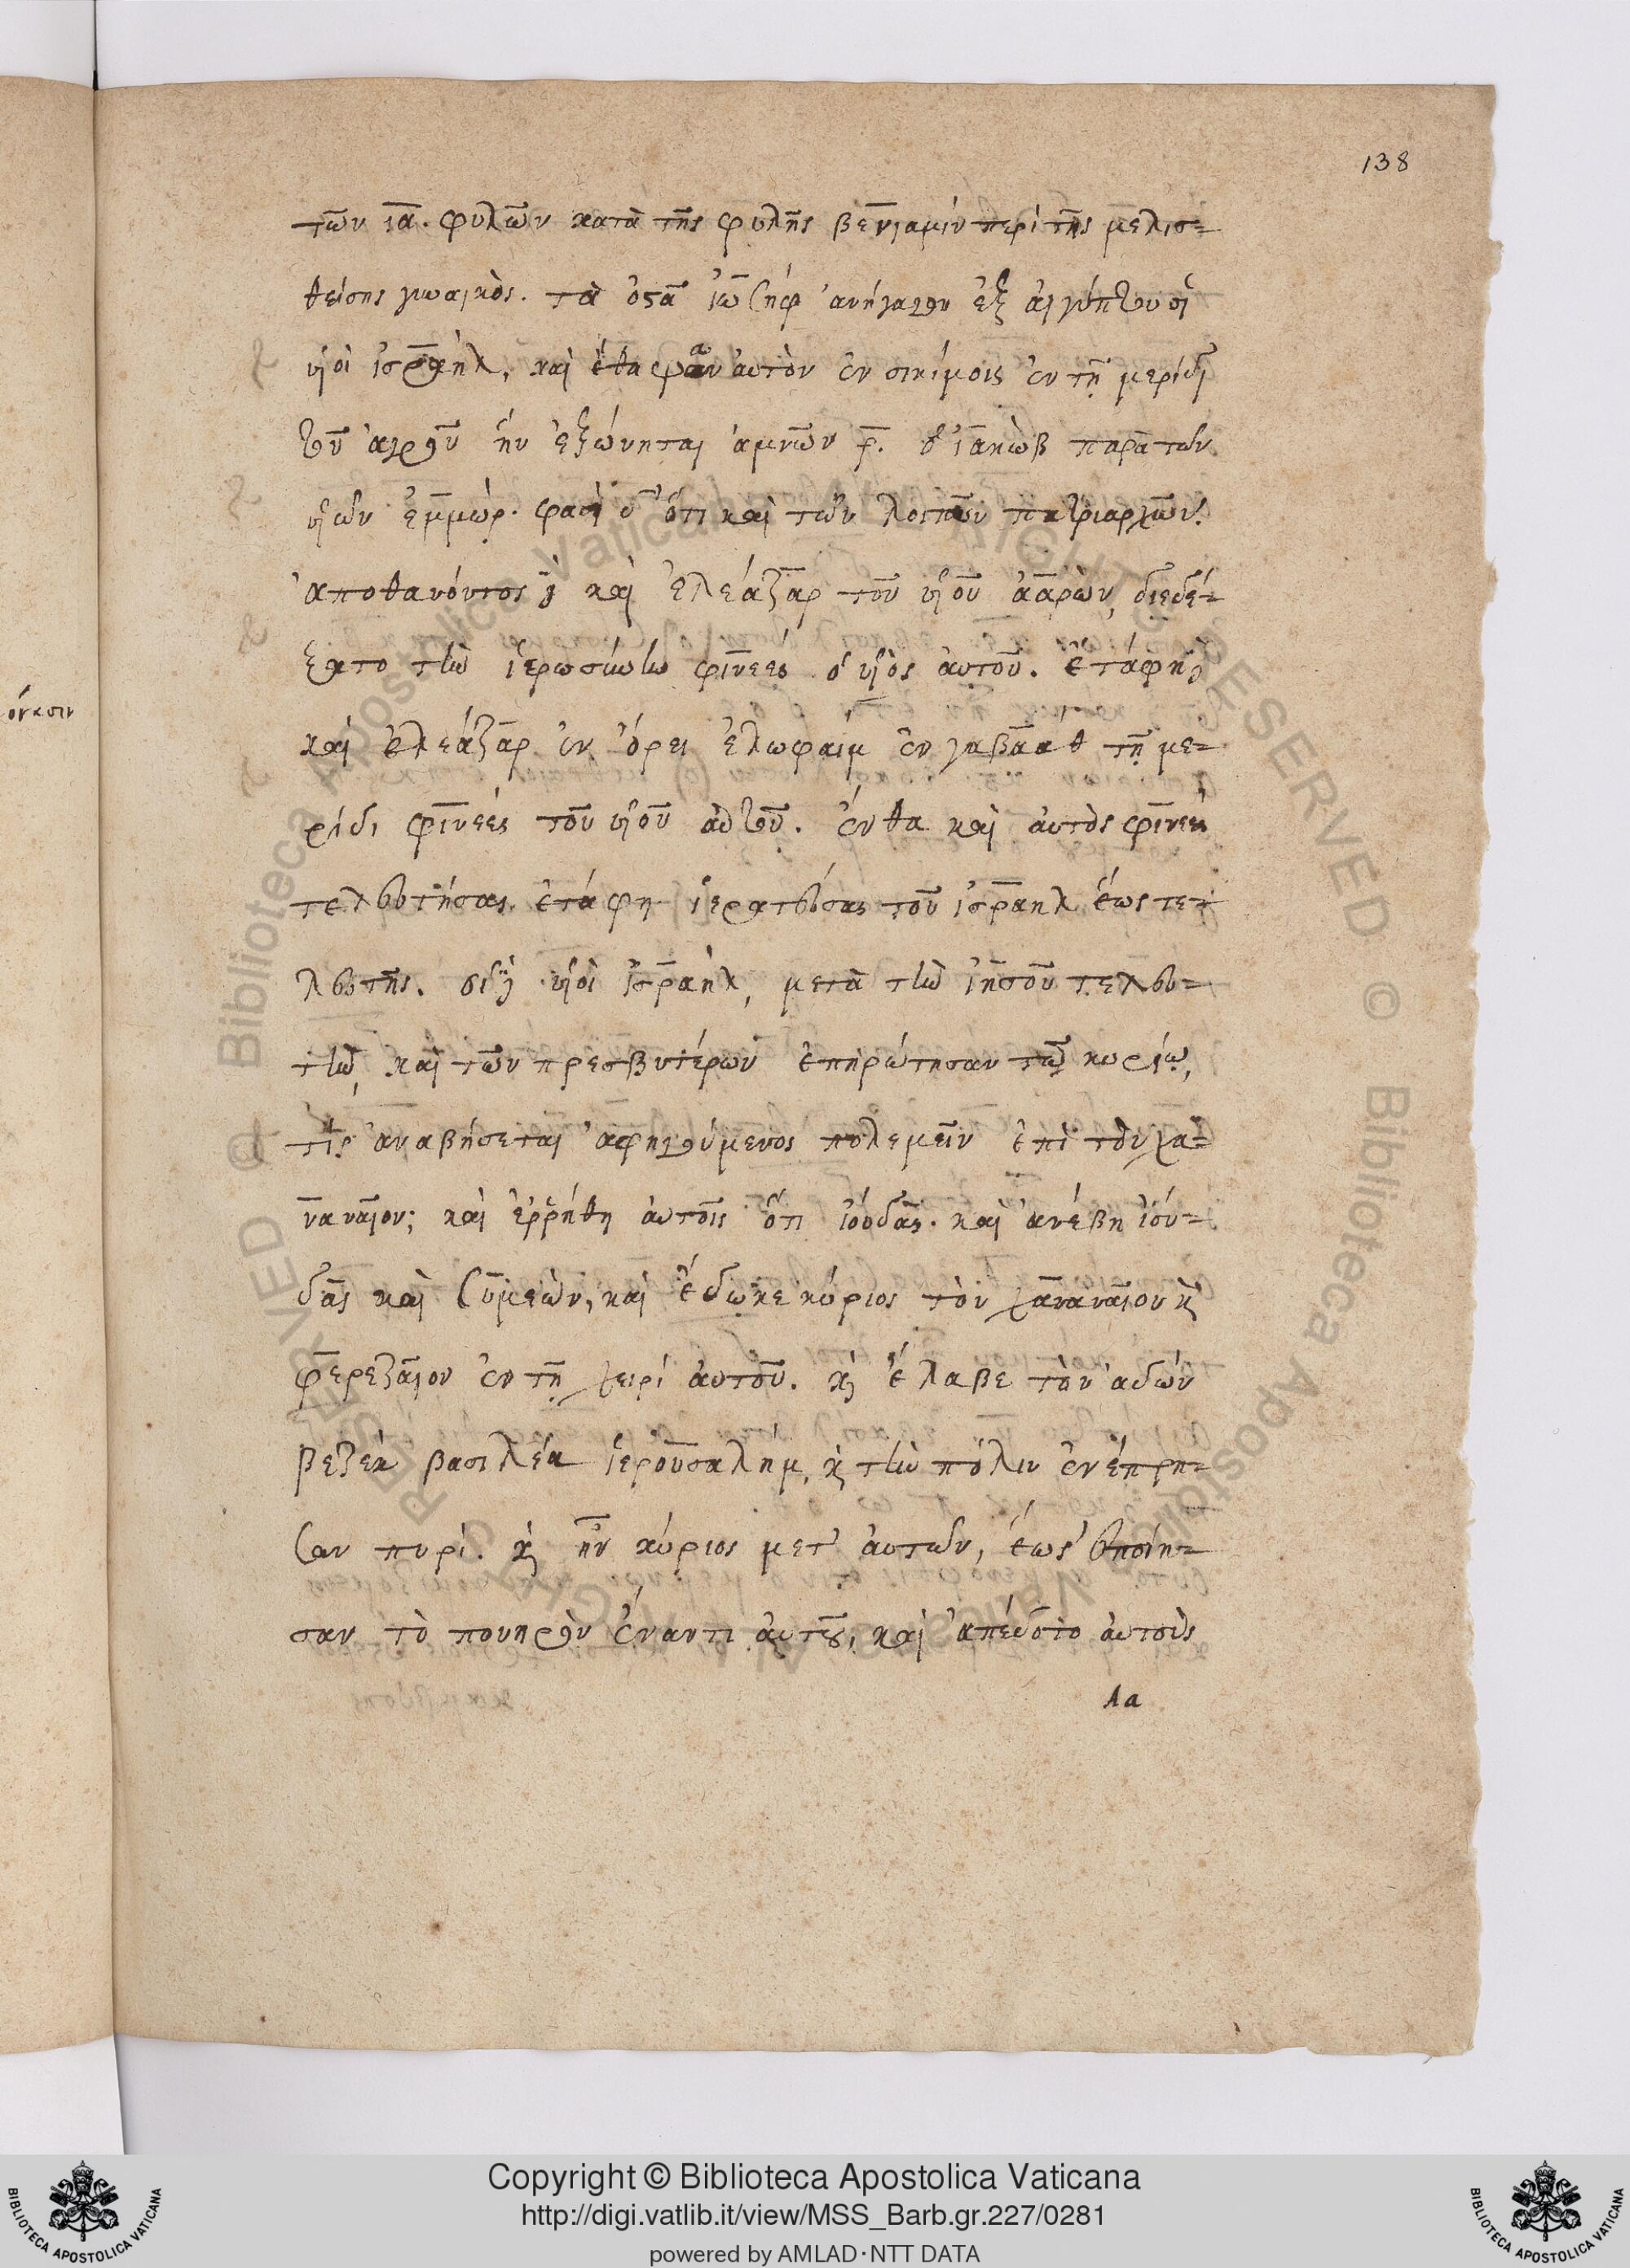 138
τῶν ια. φυλῶν κατὰ τῆς φυλῆς βενιαμὶν περὶ τῆς μελισ=
θείσης γυναικὸς. τὰ ὀστᾶ ἰωσὴφ ἀνήγαγον ἐξ αἰγύπτου οἱ
υἱοὶ ἰσραὴλ, καὶ ἔθαψαν αὐτὸν ἐν σικίμοις ἐν τῇ μερίδι
τοῦ ἀγροῦ ἣν ἐξώνηται ἀμνῶν ρ. ὁ ἰακὼβ παρὰ τῶν
υἱῶν ἐμμὼρ. φασὶ δ' ὅτι καὶ τῶν λοιπῶν πατριαρχῶν.
ἀποθανόντος δὲ καὶ ἐλεάζαρ τοῦ υἱοῦ ἀαρὼν, διεδέ=
ξατο τὴν ἱερωσύνην φινεὲς ὁ υἱὸς αὐτοῦ. ἐτάφη δὲ
όνασιν
καὶ ἐλεάζαρ ἐν ὄρει ἐλωφαὶμ ἐν γαβαὰθ τῇ με=
ρίδι φινεὲς τοῦ υἱοῦ αὐτοῦ. ἔνθα καὶ αὐτὸς φινεὲς
τελευτήσας ἐτάφη ἱερατεύσας τοῦ ἰσραὴλ ἕως τε=
λευτῆς. οἱ δὲ υἱοὶ ἰσραὴλ, μετὰ τὴν ἰησοῦ τελευ=
τὴν, καὶ τῶν πρεσβυτέρων ἐπηρώτησαν τῷ κυρίῳ,
τίς ἀναβήσεται ἀφηγούμενος πολεμεῖν ἐπὶ τὸν χα=
ναναῖον; καὶ ἐρρήθη αὐτοῖς ὅτι ἰούδας. καὶ ἀνέβη ἰού=
δας καὶ συμεὼν, καὶ ἔδωκε κύριος τὸν χαναναῖον κὶ
φερεζαῖον ἐν τῇ χειρὶ αὐτοῦ. κὶ ἔλαβε τὸν ἀδων
βεζὲκ βασιλέα ἱερουσαλήμ, κὶ τὴν πόλιν ἐνέπρη=
σαν πυρί. κὶ ἦν κύριος μετ' αὐτῶν, ἕως ἐποίη=
σαν τὸ πονηρὸν ἔναντι αὐτοῦ, καὶ ἀπέδοτο αὐτοὺς
Λα
Copyright © Biblioteca Apostolica Vaticana
http://digi.vatlib.it/view/MSS_Barb.gr.227/0281
powered by AMLAD·NTT DATA
BIBLIOTECA APOSTOLICA VATICANA
BIBLIOTECA APOSTOLICA VATICANA